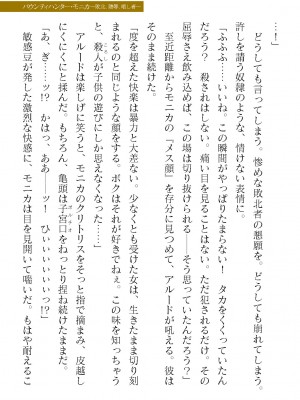 バウンティハンター・モニカ ─敗北、陵辱、喘し者─
どうしても言ってしまう。惨めな敗北者の懇願を。どうしても崩れてしまう。
許しを請う奴隷のような、情けない表情に。
「ふふふ……いいね。この瞬間がやっぱりたまらない！　タカをくくっていたん
だろう？　殺されはしない。痛い目を見ることもない。ただ犯されるだけ。その
屈辱さえ飲み込めば、この場は切り抜けられる――そう思っていたんだろう？」
至近距離からモニカの「メス顔」を存分に見つめて、アルードが吼える。彼は
そのまま続けた。
「度を超えた快楽は暴力と大差ない。少なくとも受けた女は、生きたまま切り刻
まれるのと同じような顔をする。ボクはそれが好きでねぇ。この味を知っちゃう
と、殺人が子供の遊びにしか思えなくなった……」
アルードは楽しげに笑うと、モニカのクリトリスをそっと指で摘まみ、皮越し
にくにくにと揉んだ。もちろん、亀頭は子宮口をおっとりと捏ね続けたままだ。
「あ、ぎ……ッ!?　かはっ、ああ――ッ！　ひぃぃぃぃぃっ!?」
敏感豆が発した激烈な快感に、モニカは目を見開いて喘いだ。もはや耐えるこ